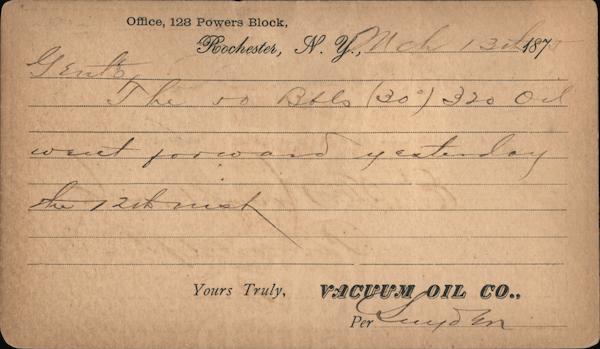 Office, 128 Powers Block,
Rochester, N. Y., Mch 13th 187
Gents,
The 50 Bbls (30°) 320 Oil
went forward yesterday
the 12th inst
Yours Truly, VACUUM OIL CO.,
Per